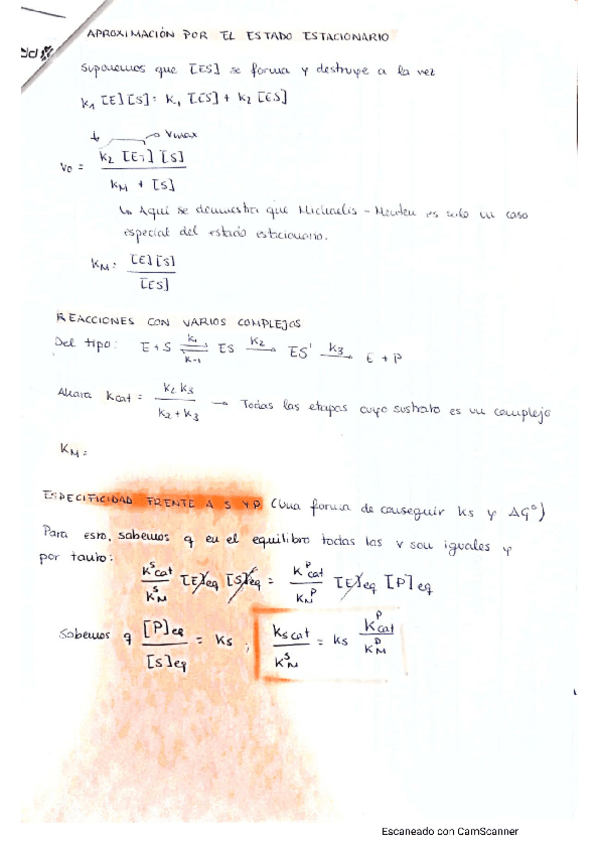 APROXIMACIÓN POR EL ESTADO ESTACIONARIO
Suponemos que [ES] se forma y destruye a la vez
k₁ [E][S] = k₋₁ [ES] + k₂ [ES]
↓ → Vmax
V₀ = k₂ [E_T] [S] / k_M + [S]
↳ Aquí se demuestra que Michaelis - Menten es solo un caso
especial del estado estacionario.
k_M = [E][S] / [ES]
REACCIONES CON VARIOS COMPLEJOS
Del tipo: E + S ⇌ ES → ES' → E + P
k₁ k₋₁ k₂ k₃
Ahora kcat = k₂ k₃ / k₂ + k₃ → Todas las etapas cuyo sustrato es un complejo
K_M =
ESPECIFICIDAD FRENTE A S Y P (Una forma de conseguir ks y ΔG°)
Para esto, sabemos q en el equilibro todas las v son iguales y
por tanto:
k^S cat / k^S_M [E]eq [S]eq = k^P cat / k_M^P [E]eq [P]eq
Sabemos q [P]eq / [S]eq = ks ; ks cat / k^S_M = ks k^P cat / k^P_M
Escaneado con CamScanner